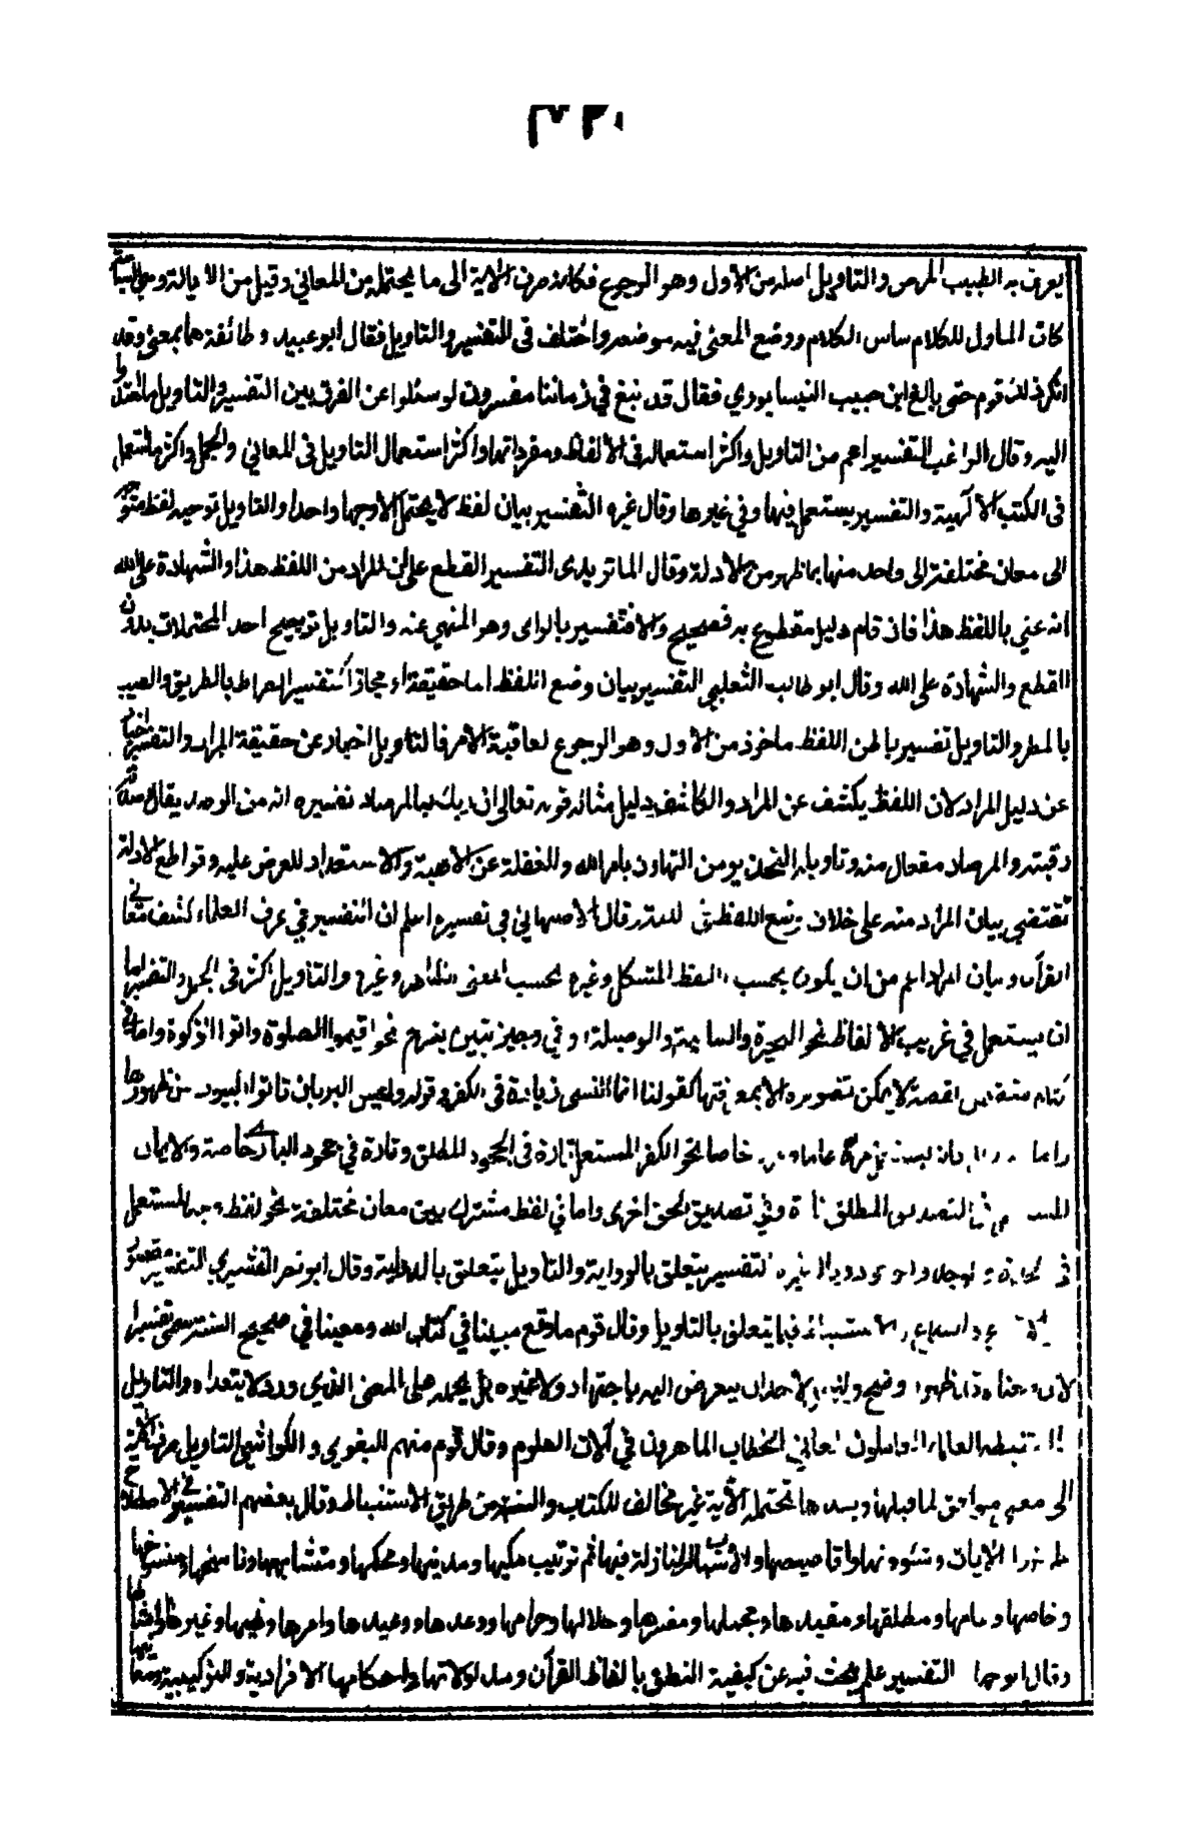 يعرف به الطبيب المرض والتاويل اصله من الاول وهو الرجوع فكانه صرف الاية الى ما يحتمله من المعاني وقيل من الايالة وهي السياسة
كان الماول للكلام ساس الكلام ووضع المعنى فيه موضعه واختلف في التفسير والتاويل فقال ابو عبيد وطائفة هما بمعنى وقد
انكر ذلك قوم حتى بالغ ابن حبيب النيسابوري فقال قد نبغ في زماننا مفسرون لو سئلوا عن الفرق بين التفسير والتاويل ما اهتدوا
اليه وقال الراغب التفسير اعم من التاويل واكثر استعماله في الالفاظ ومفرداتها واكثر استعمال التاويل في المعاني والجمل واكثر ما يستعمل
في الكتب الالهية والتفسير يستعمل فيها وفي غيرها وقال غيره التفسير بيان لفظ لا يحتمل الا وجها واحدا والتاويل توجيه لفظ متوجه
الى معان مختلفة الى واحد منها بما ظهر من الادلة وقال الماتريدى التفسير القطع على ان المراد من اللفظ هذا والشهادة على الله
انه عني باللفظ هذا فان قام دليل مقطوع به فصحيح والا فتفسير بالراى وهو المنهي عنه والتاويل ترجيح احد المحتملات بدون
القطع والشهادة على الله وقال ابو طالب الثعلبي التفسير بيان وضع اللفظ اما حقيقة او مجازا كتفسير الصراط بالطريق والصيب
بالمطر والتاويل تفسير باطن اللفظ ماخوذ من الاول وهو الرجوع لعاقبة الامر فالتاويل اخبار عن حقيقة المراد والتفسير اخبار
عن دليل المراد لان اللفظ يكشف عن المراد والكاشف دليل مثاله قوله تعالى ان ربك لبالمرصاد تفسيره انه من الرصد يقال رصدته
رقبته والمرصاد مفعال منه وتاويله التحذير من التهاون بامر الله والغفلة عن الاهبة والاستعداد للعرض عليه وقواطع الادلة
تقتضي بيان المراد منه على خلاف وضع اللفظ في اللغة وقال الاصبهاني في تفسيره اعلم ان التفسير في عرف العلماء كشف معاني
القرآن وبيان المراد اعم من ان يكون بحسب اللفظ المشكل وغيره بحسب المعنى الظاهر وغيره والتاويل اكثره في الجمل والتفسير اما
ان يستعمل في غريب الالفاظ نحو البحيرة والسايبة والوصيلة او في وجيز تبيين بشرح نحو اقيموا الصلوة واتوا الزكوة واما في
كلام متضمن لقصة لا يمكن تصويره الا بمعرفتها كقولنا انما النسى زيادة في الكفر وقوله وليس البر بان تاتوا البيوت من ظهورها
واما التاويل فانه يستعمل مرة عاما و خاصا نحو الكفر المستعمل تارة في الجحود المطلق وتارة في جحود الباري خاصة والايمان
المستعمل في التصديق المطلق تارة وفي تصديق الحق اخرى واما في لفظ مشترك بين معان مختلفة نحو لفظ وجد المستعمل
في الجدة والوجد والوجود وقال غيره التفسير يتعلق بالرواية والتاويل يتعلق بالدراية وقال ابو نصر القشيري التفسير مقصور
على الاتباع والسماع والاستنباط فيما يتعلق بالتاويل وقال قوم ما وقع مبينا في كتاب الله ومعينا في صحيح السنة سمى تفسيرا
لان معناه قد ظهر ووضح وليس لاحد ان يتعرض اليه باجتهاد ولا غيره بل يحمله على المعنى الذي ورد لا يتعداه والتاويل
ما استنبطه العلماء العاملون لمعاني الخطاب الماهرون في آلات العلوم وقال قوم منهم البغوي والكواشي التاويل صرف الاية
الى معنى موافق لما قبلها وبعدها تحتمله الآية غير مخالف للكتاب والسنة من طريق الاستنباط وقال بعضهم التفسير في الاصطلاح
علم نزول الايات وشؤونها واقاصيصها والاسباب النازلة فيها ثم ترتيب مكيها ومدنيها ومحكمها ومتشابهها وناسخها ومنسوخها
وخاصها وعامها ومطلقها ومقيدها ومجملها ومفسرها وحلالها وحرامها ووعدها ووعيدها وامرها ونهيها وعبرها وامثالها
وقال ابو حيان التفسير علم يبحث فيه عن كيفية النطق بالفاظ القرآن ومدلولاتها واحكامها الافرادية والتركيبية ومعانيها